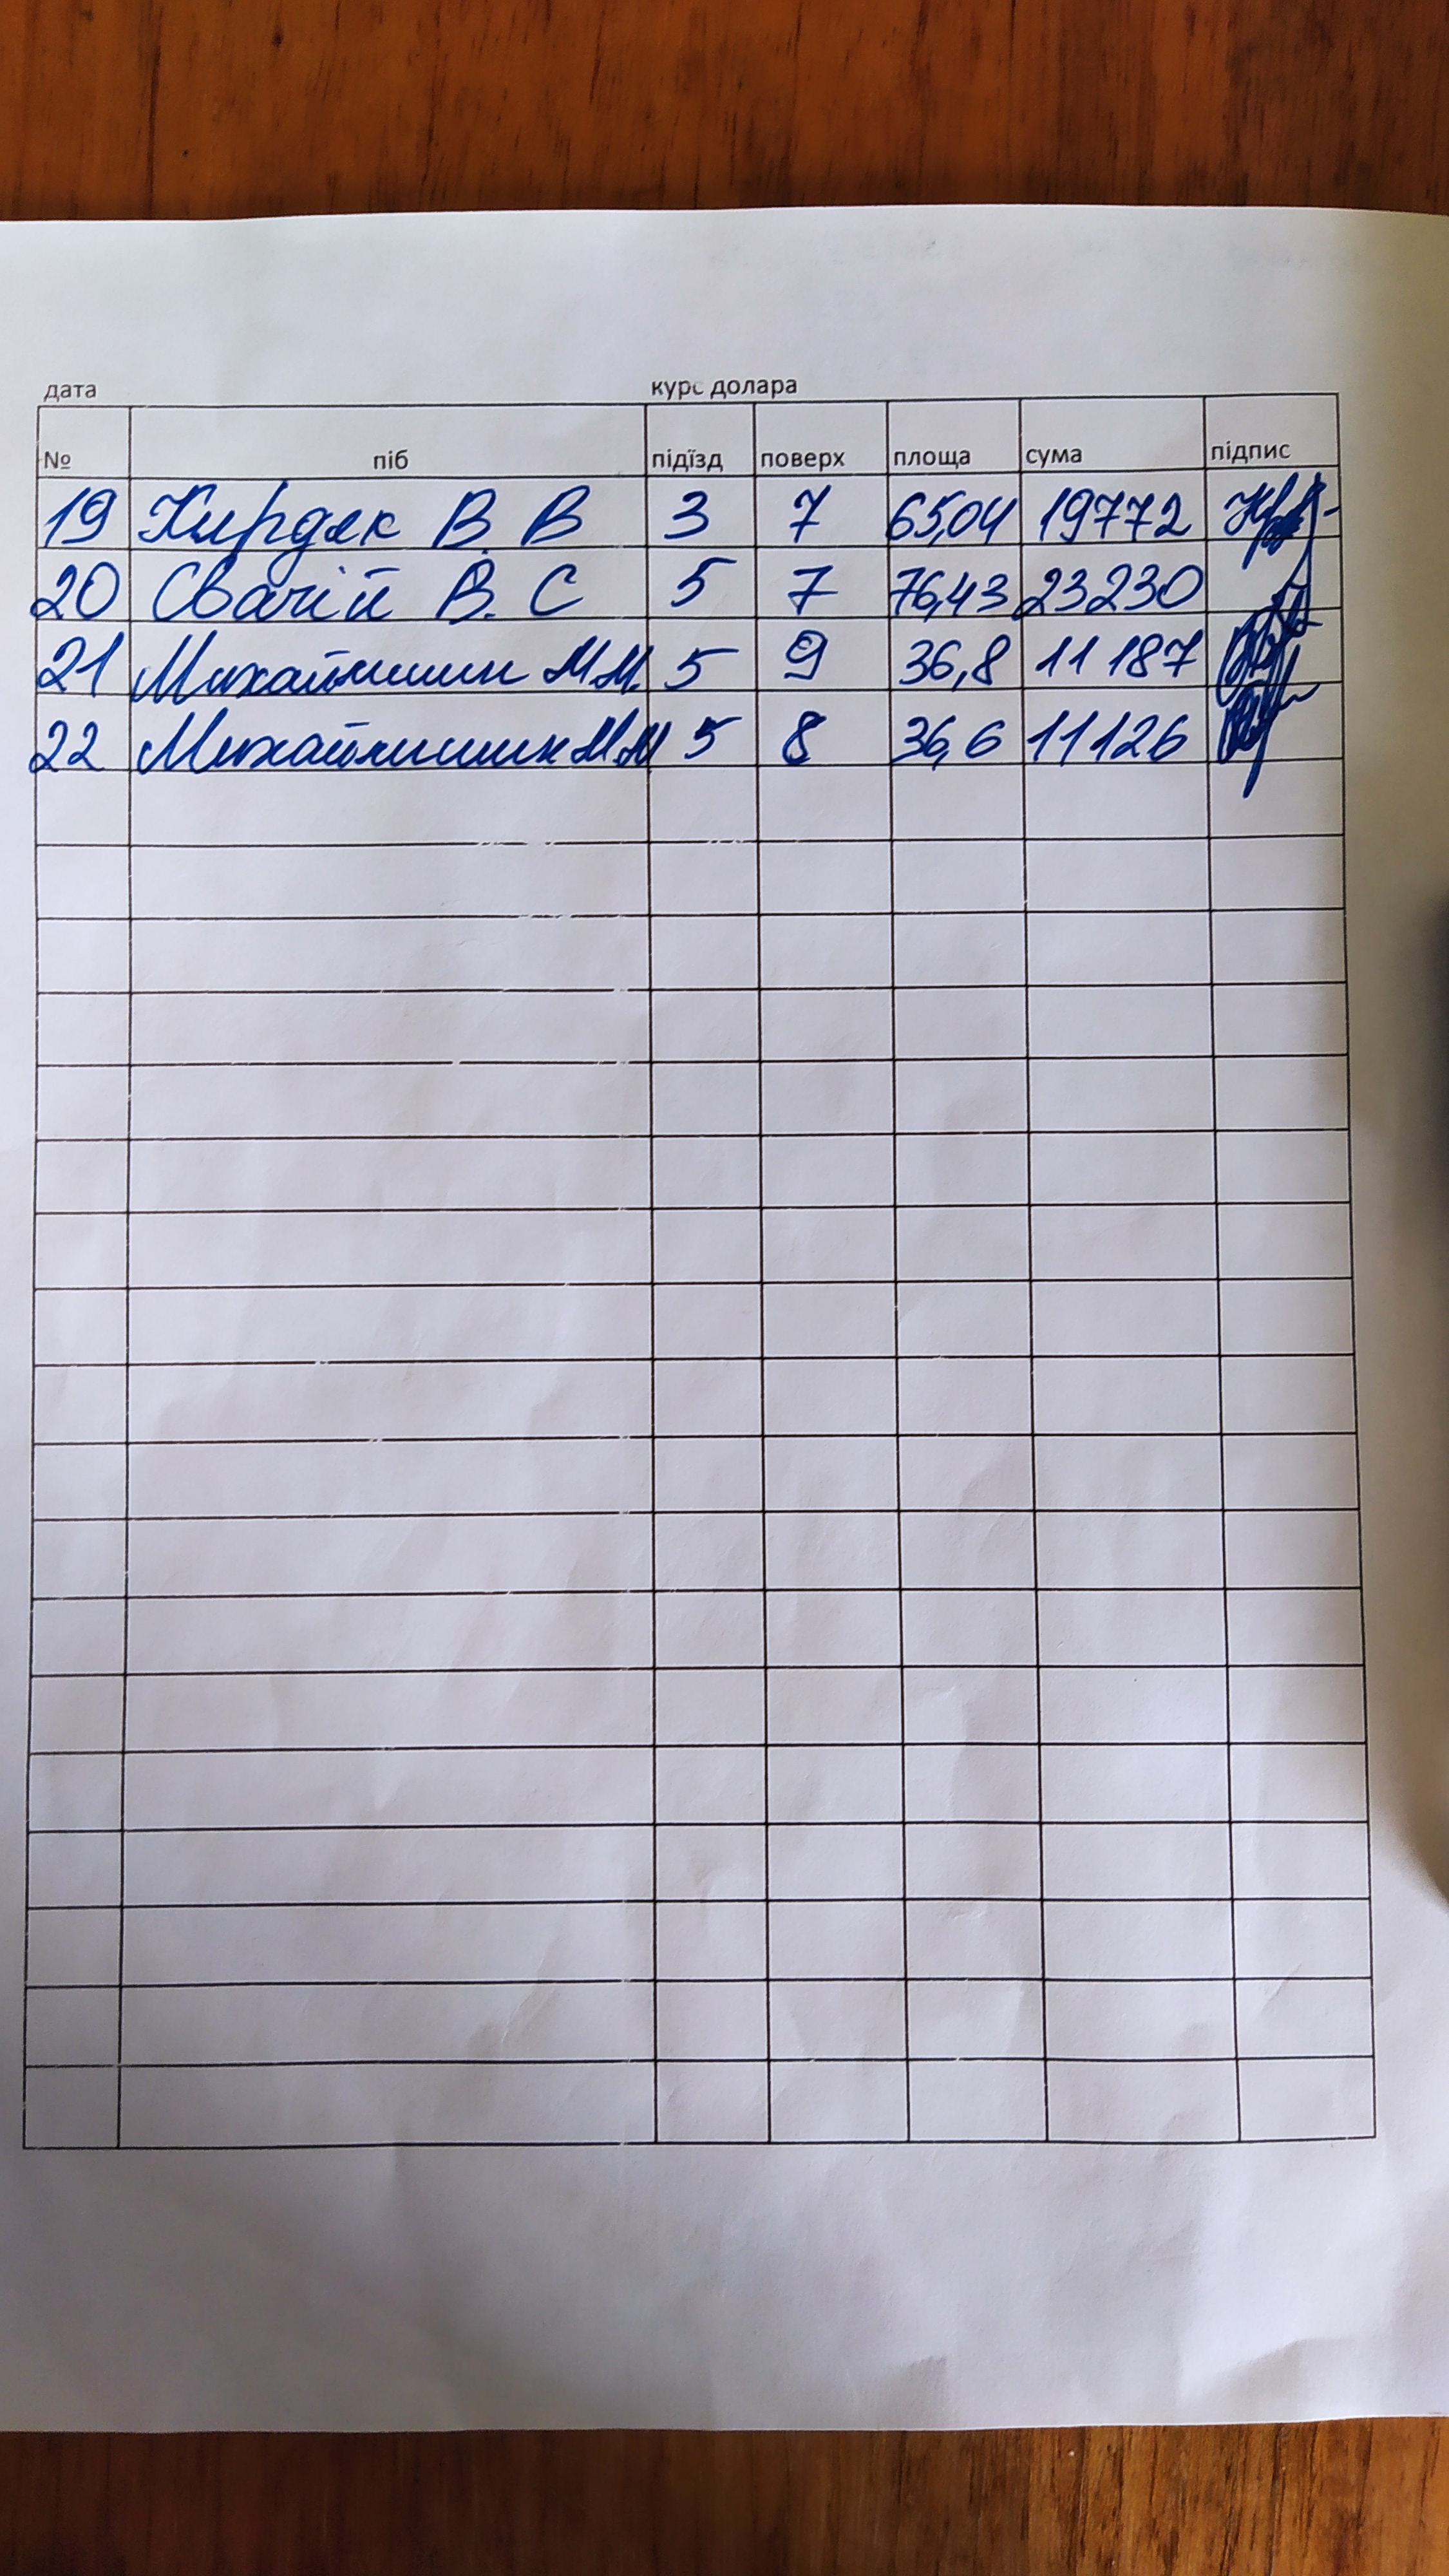 дата курс долара
№ піб підїзд поверх площа сума підпис
19 Хирдек В В 3 7 65,04 19772
20 Свачій В. С 5 7 76,43 23230
21 М.М. 5 9 36,8 11187
22 ММ 5 8 36,6 11126